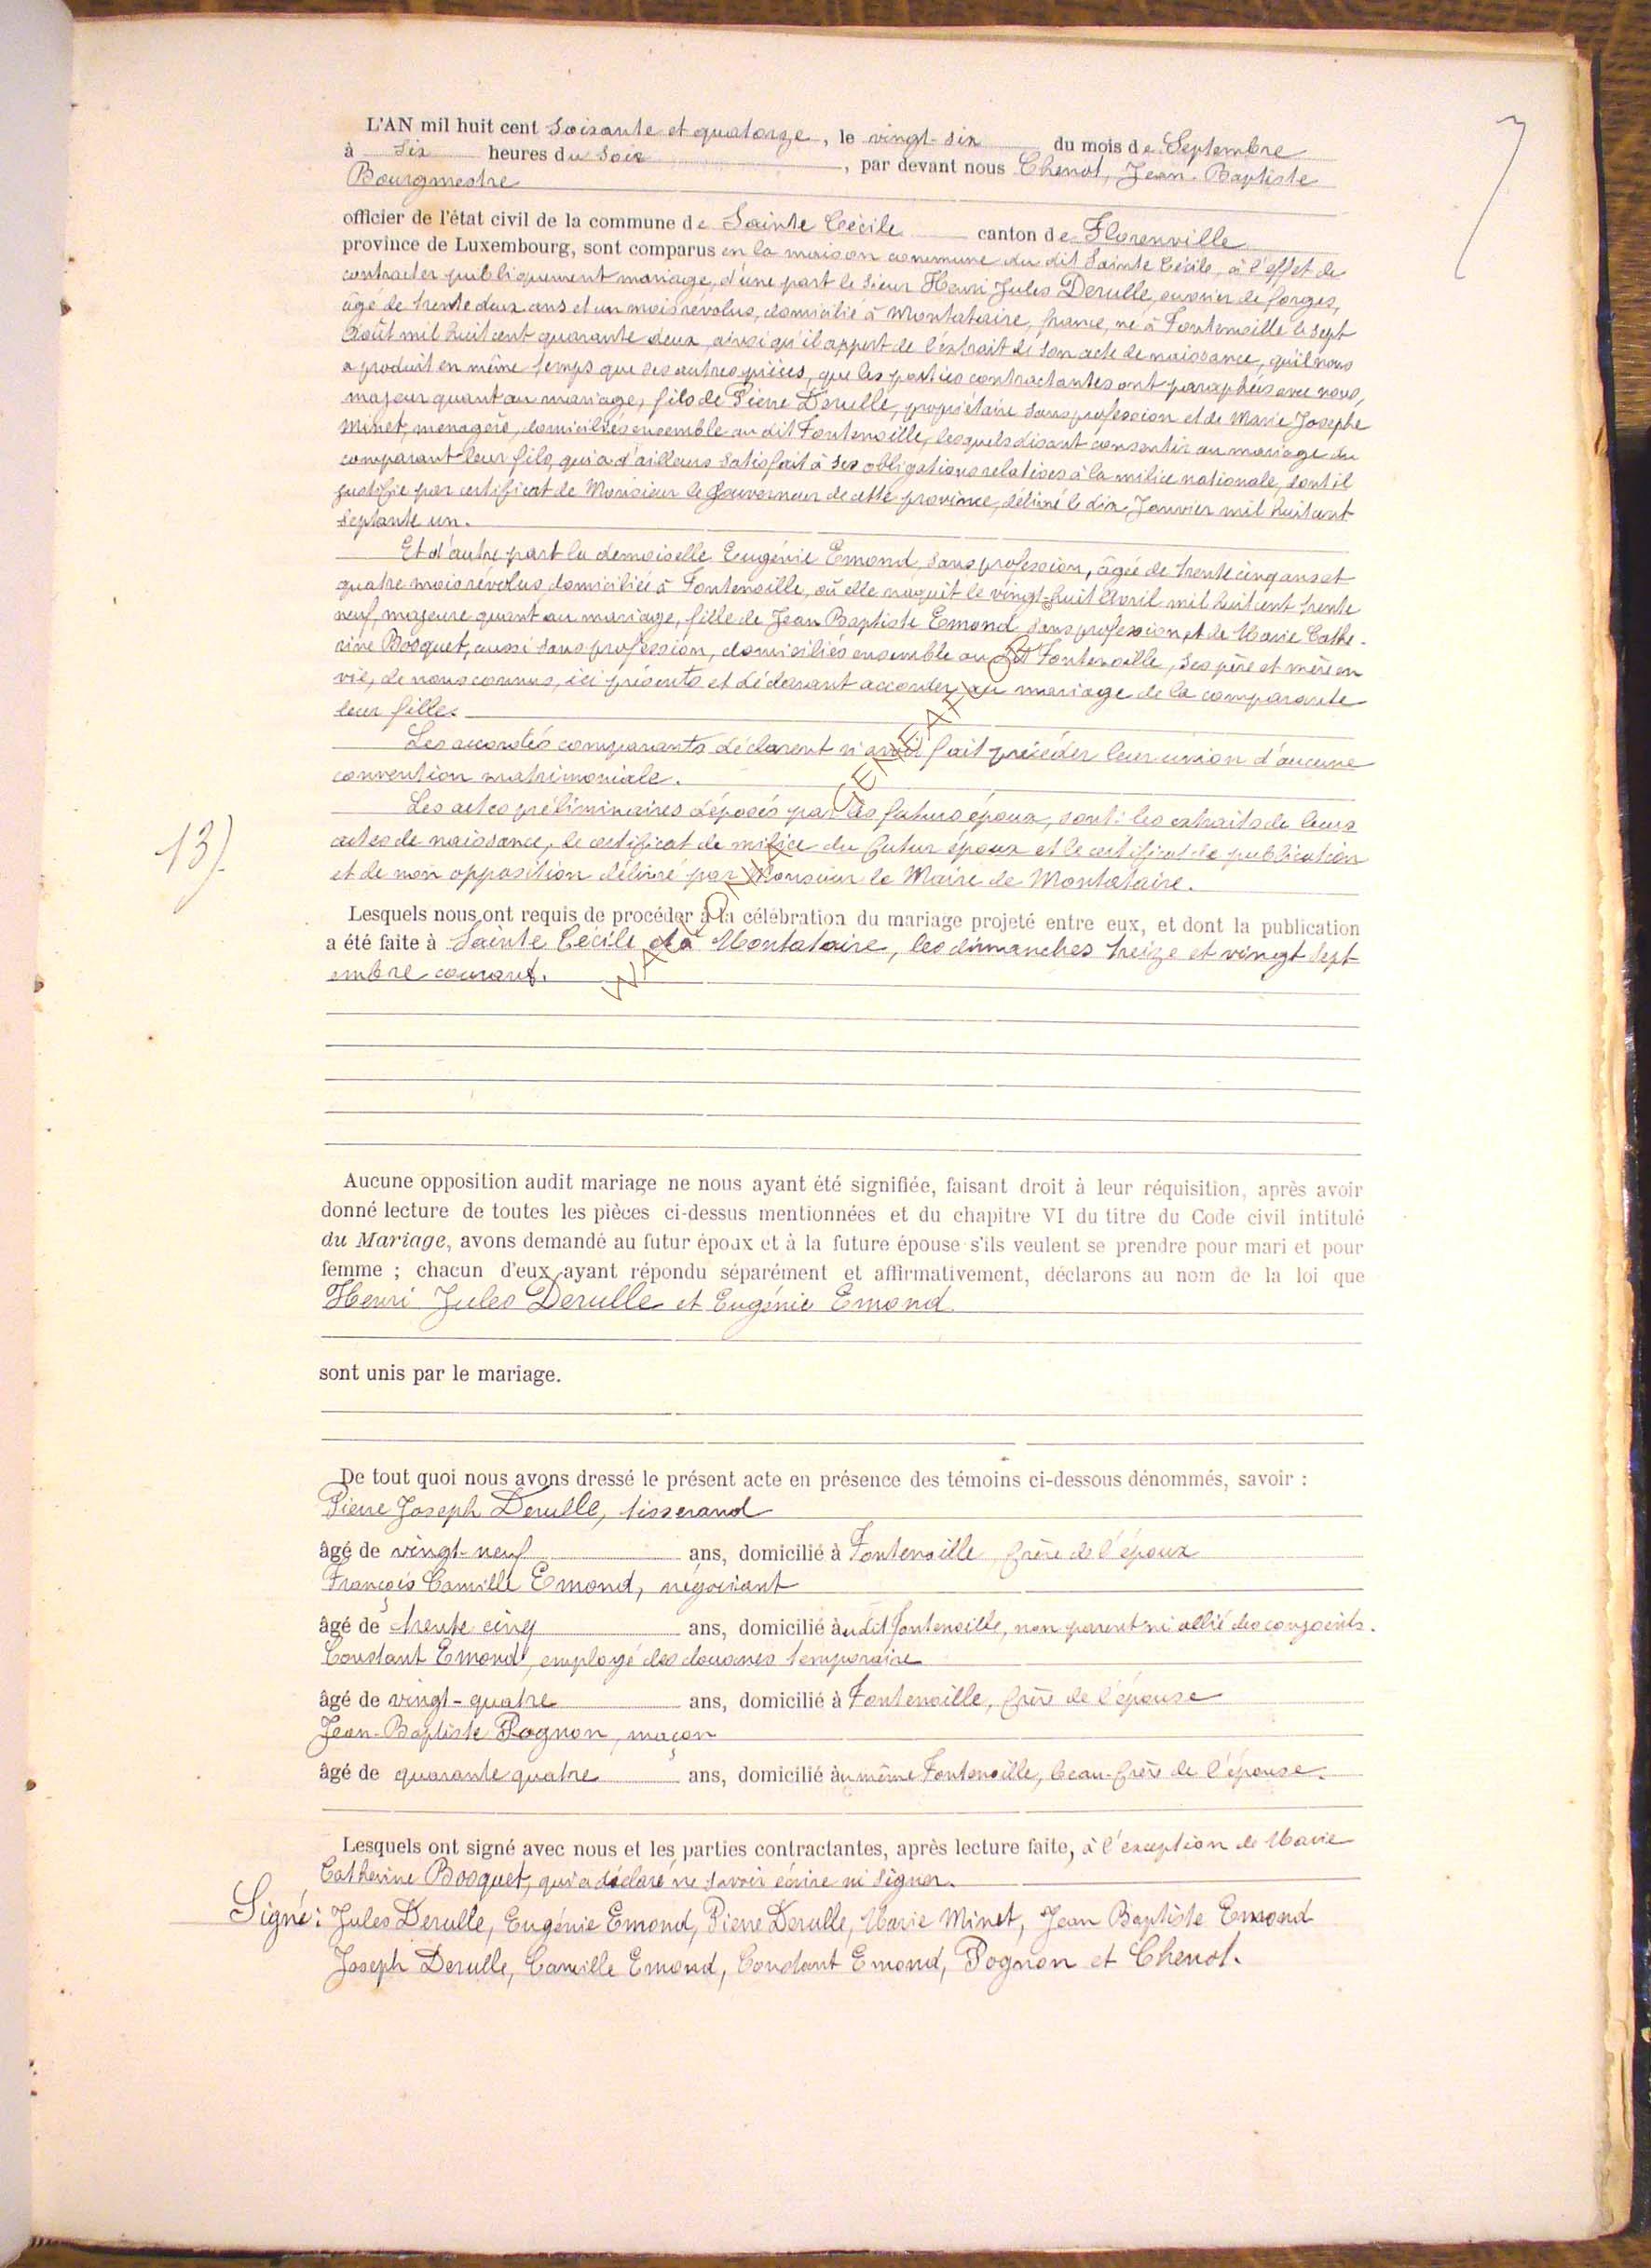 L'AN mil huit cent soixante et quatorze, le vingt-six du mois de Septembre
à six heures du soir, par devant nous Chenot, Jean-Baptiste
Bourgmestre
officier de l'état civil de la commune de Sainte Cécile canton de Florenville
province de Luxembourg, sont comparus en la maison commune du dit Sainte Cécile, à l'effet de
contracter publiquement mariage, d'une part le sieur Henri Jules Derulle, ouvrier de forges,
âgé de trente deux ans et un mois révolus, domicilié à Montataire, france, né à Fontenoille le sept
Août mil huit cent quarante deux, ainsi qu'il appert de l'extrait de son acte de naissance, qu'il nous
a produit en même temps que les autres pièces, que les parties contractantes ont paraphées avec nous,
majeur quant au mariage, fils de Pierre Derulle, propriétaire sans profession et de Marie Josephe
Minet, menagère, domiciliés ensemble au dit Fontenoille, lesquels disant consentir au mariage du
comparant leur fils, qui a d'ailleurs satisfait à ses obligations relatives à la milice nationale, dont il
justifie par certificat de Monsieur le Gouverneur de cette province, délivré le dix Janvier mil huit cent
septante un.
Et d'autre part la demoiselle Eugénie Emond, sans profession, âgée de trente cinq ans et
quatre mois révolus domiciliée à Fontenoille, où elle naquit le vingt-huit Avril mil huit cent trente
neuf, majeure quant au mariage, fille de Jean Baptiste Emond sans profession et de Marie Cathe-
rine Bosquet, aussi sans profession, domiciliés ensemble au dit Fontenoille, ses père et mère en
vie, de nous connus, ici présents et déclarant accorder au mariage de la comparante
leur fille.
Les accordés comparants déclarent n'avoir fait précéder leur union d'aucune
convention matrimoniale.
Les actes préliminaires déposés par les futurs époux, sont: les extraits de leurs
actes de naissance, le certificat de milice du futur époux et le certificat de publication
et de non opposition délivré par Monsieur le Maire de Montataire.
13).
Lesquels nous ont requis de procéder à la célébration du mariage projeté entre eux, et dont la publication
a été faite à Sainte Cécile et à Montataire, les dimanches treize et vingt Sept
embre courant.
Aucune opposition audit mariage ne nous ayant été signifiée, faisant droit à leur réquisition, après avoir
donné lecture de toutes les pièces ci-dessus mentionnées et du chapitre VI du titre du Code civil intitulé
du Mariage, avons demandé au futur époux et à la future épouse s'ils veulent se prendre pour mari et pour
femme ; chacun d'eux ayant répondu séparément et affirmativement, déclarons au nom de la loi que
Henri Jules Derulle et Eugénie Emond
sont unis par le mariage.
De tout quoi nous avons dressé le présent acte en présence des témoins ci-dessous dénommés, savoir :
Pierre Joseph Derulle, tisserand
âgé de vingt-neuf ans, domicilié à Fontenoille frère de l'époux
François Camille Emond, négociant
âgé de trente cinq ans, domicilié au dit Fontenoille, non parent ni allié des conjoints.
Constant Emond, employé des douanes temporaire
âgé de vingt-quatre ans, domicilié à Fontenoille, frère de l'épouse
Jean-Baptiste Pognon, maçon
âgé de quarante quatre ans, domicilié au même Fontenoille, beau-frère de l'épouse.
Lesquels ont signé avec nous et les parties contractantes, après lecture faite, à l'exception de Marie
Catherine Bosquet, qui a déclaré ne savoir écrire ni signer.
Signé: Jules Derulle, Eugénie Emond, Pierre Derulle, Marie Minet, Jean Baptiste Emond
Joseph Derulle, Camille Emond, Constant Emond, Pognon et Chenot.